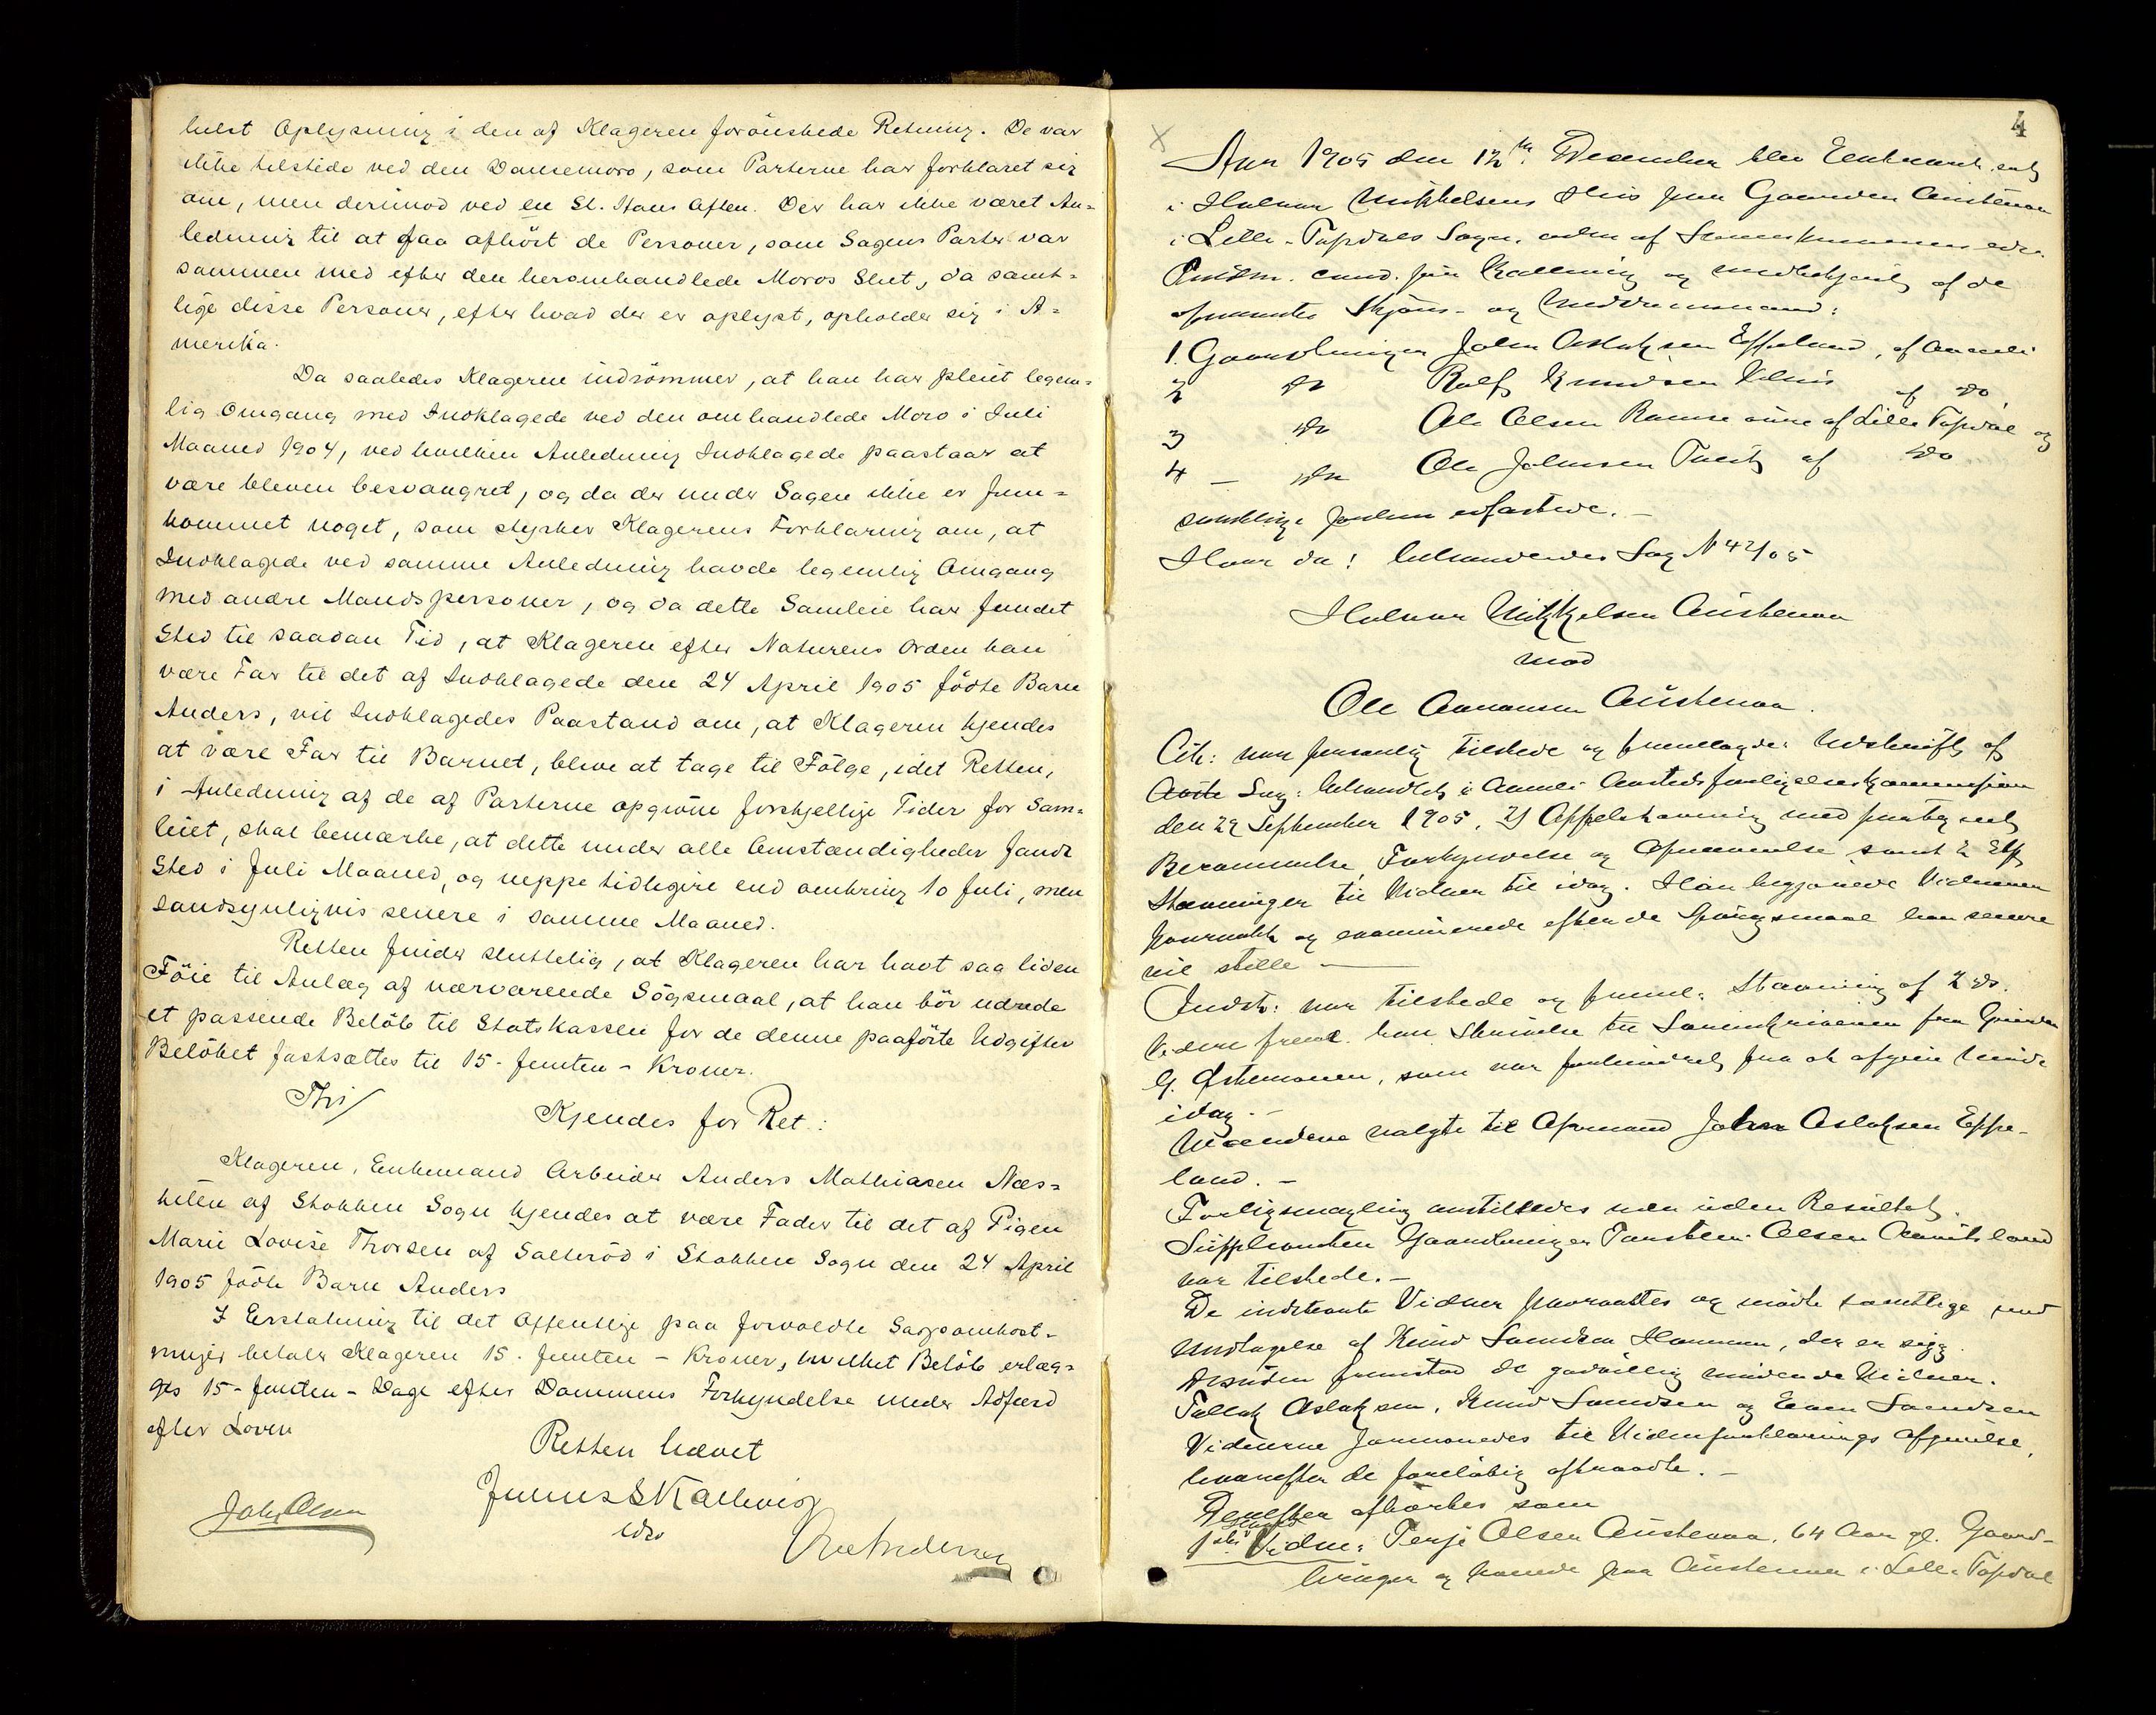 helst Oplysning i den af Klageren forönskede Retning. De var
ikke tilstede ved den Dansemoro, som Parterne har forklaret sig
om, men derimod ved en St. Hans Aften. Der har ikke været An-
ledning til at faa afhört de Personer, som Sagens Parter var
sammen med efter den heromhandlede Moros Slut, da samt-
lige disse Personer, efter hvad der er oplyst, opholder sig i A-
merika.
Da saaledes Klageren indrömmer, at han har pleiet legem-
lig Omgang med Indklagede ved den omhandlede Moro i Juli
Maaned 1904, ved hvilken Anledning Indklagede paastaar at
være bleven besvangret, og da der under Sagen ikke er frem-
kommet noget, som styrker Klagerens Forklaring om, at
Indklagede ved samme Anledning havde legemlig Omgang
med andre Mandspersoner, og da dette Samleie har fundet
Sted til saadan Tid, at Klageren efter Naturens Orden kan
være Far til det af Indklagede den 24 April 1905 födte Barn
Anders, vil Indklagedes Paastand om, at Klageren kjendes
at være Far til Barnet, blive at tage til Fölge, idet Retten,
i Anledning af de af Parterne opgivne forskjellige Tider for Sam-
leiet, skal bemærke, at dette under alle Omstændigheder fandt
Sted i Juli Maaned, og neppe tidligere end omkring 10 Juli, men
sandsynligvis senere i samme Maaned.
Retten finder sluttelig, at Klageren har havt saa liden
Föie til Anlæg af nærværende Sögsmaal, at han bör udrede
et passende Belöb til Statskassen for de denne paaförte Udgifter
Belöbet fastsættes til 15 - femten - Kroner.
Thi
Kjendes for Ret:
Klageren, Enkemand Arbeider Anders Mathiasen Næs-
kilen af Stokken Sogn kjendes at være Fader til det af Pigen
Marie Lovise Thorsen af Salteröd i Stokken Sogn den 24 April
1905 födte Barn Anders
I Erstatning til det Offentlige paa forvoldte Sagsomkost-
ninger betaler Klageren 15 - femten - Kroner, hvilket Belöb erlæg-
ges 15 - femten - Dage efter Dommens Forkyndelse under Adfærd
efter Loven
Retten hævet
Julius S Kallevig
edsv
John Olsen
4
Aar 1905 den 12te December blev Extraret sat
i Halvor Mikkelsens Hus paa Gaarden Austenaa
i Lille-Topdals Sogn, af Sorenskriverens edsv.
Fuldm. cand. jur Kallevig og medbetjent af de
opnævnte Skjöns- og Meddomsmænd:
1. Gaardbruger John Aslaksen Eppeland, af Aamli
2 do Rolf Knudsen af do,
3 do Ole Olsen Ramse af Lille Topdal og
4 - do Ole Johnsen Tveit af do
samtlige forhen edfæstede. -
Hvor da! behandledes Sag N 42/05
Halvor Mikkelsen Austenaa
mod
Ole Aanonsen Austenaa.
Cit: var personlig tilstede og fremlagde: Udskrift af
Sag: behandlet i Aamli Aastedsforligelseskommission
den 29 September 1905, Stævning med paateg
Berammelse, Forkyndelse og Opnævnelse samt
Stævninger til Vidner til idag. Han begjærede Vidnerne
og examinerede efter de Spörgsmaal han senere
vil stille -
Indst: var tilstede og freml: Stævning af
Videre freml. han Skrivelse til Sorenskriveren fra
G. som var forhindret fra at afgive Vidne
idag. -
Mændene valgte til Formand John Aslaksen Eppe-
land. -
Forligsmægling anstilledes men uden Resultat.
Suppleanten Gaardbruger Olsen
var tilstede. -
De indstevnte Vidner paaraabtes og mödte samtlige med
Undtagelse af Knud der er syg.
Desuden fremstod de godvillig mödende Vidner.
Tallak Aslaksen, Knud og Even
Vidnerne formanedes til Vidneforklarings Afgivelse,
hvorefter de foreløbig aftraadte. -
Derefter afhörtes som
1ste Vidne: Terje Olsen Austenaa, 64 Aar gl. Gaard-
bruger og boende paa Austenaa i Lille Topdal